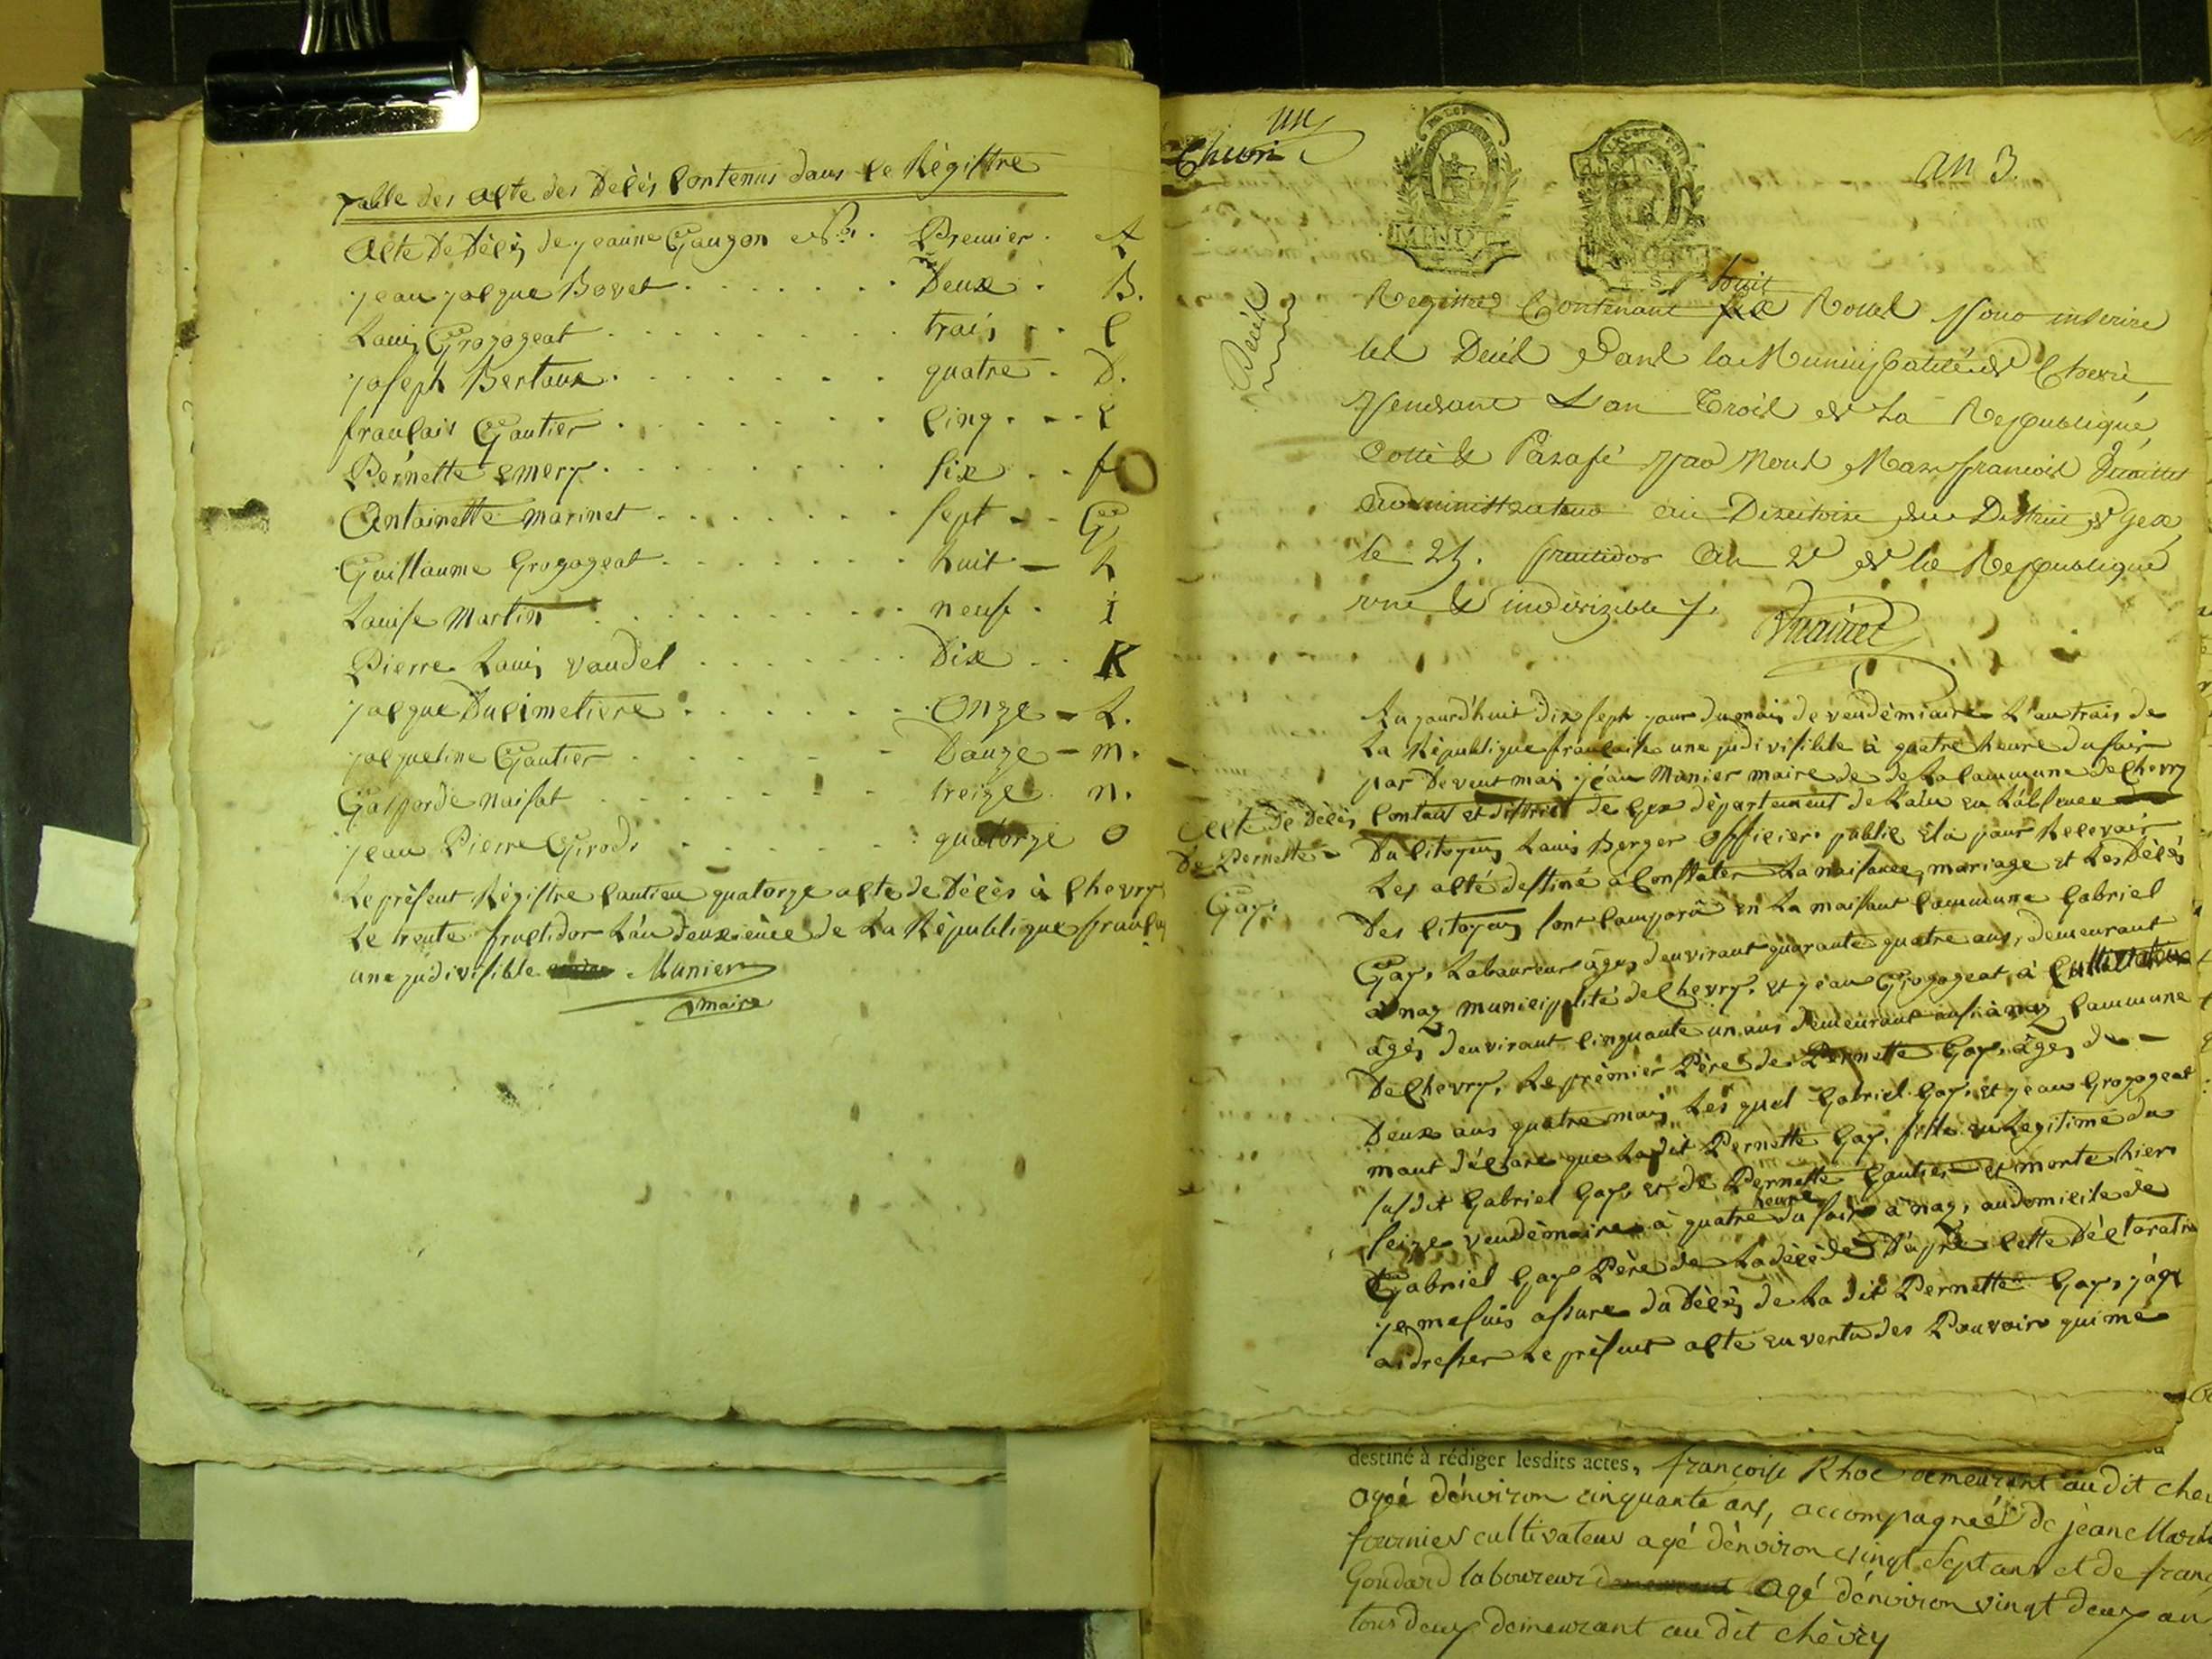 Table des alte des Délès Contenus dans le Régistre
Alte De Délès de jeanne Gaugon No. Premier. A
jean jalque Bovet . . . . . . . Deux . B.
Louis Grozogeat . . . . . . . trais . . C
joseph Bertaux . . . . . . . quatre . D.
franlais Gautier . . . . . . . Cinq . . . E
Pernette Emery . . . . . . . six . . f
Antoinette Marinet . . . . . . . sept - - G
Guillaume Grozogeat . . . . . . . huit - h
Louise Martin . . . . . . . neuf . i
Pierre Louis vaudel . . . . . . . Dix . . K
jalque Dulimetiere . . . . . . . Onze - L.
jalqueline Gautier . . . . - Douze - m.
Gasparde naisat . . . . . . . treize . n.
jean Pierre Girod . . . . . . . quatorze O
Le présent Régistre Contien quatorze alte de Délès à Chevry
Le trente fructidor L'an deuxieme de La République franlaise
une judivisible Munier
maire
un
Chevri
an 3.
MINUT
4. S.
huit
Décès
Registre Contenant six Rolles pour inscrire
les Decès Dans la Municipalité de Chevri
pendant L'an Trois de La Republique
Cotté & Parafé par Nous Marc francois
administrateur au Directoire du District de Gex
le 25. fructidor An 2e de la Republique
une & indivizible
Aujourd'huit dix sept jour du mois de vendémiaire L'an trais de
La République franlaise une judivisible à quatre heure du soir
par Devent mai jéan Munier maire de de La Commune de Chevry
Alte De Délès
De Pernette
Gay.
Contans et district de Gex département de L'ain en L'absence
Du Citoyen Louis Berger Offilier publil Elu pour Recevoir
Les alté destiné à Constater La naisance, mariage et Les Délès
Des Citoyens sont Comparû en La maisant Commune Gabriel
Gay, Laboureur âgés d'envirant quarante quatre ans, demeurant
à naz municipalité de Chevry, et jéan Grozogeat, à Cultivateur
âgés d'envirant Cinquante un ans demeurant ausi à naz Commune
De Chevry, Le prémier Père de Pernette Gay, âgés de -
Deux ans quatre mois Les quel Gabriel Gay, et jean Grozogeat
mant déclare que La dit Pernette Gay, fille en Legitime du
susdit Gabriel Gay, et de Pernette Gautier et morte hier
heure
seize vendémaire à quatre du soir à naz, au domicile de
Gabriel Gay Père de La décédé D'après Cette Déclaration
je me suis assure du Délès de La dit Pernette Gay, j'ai
ai dresser Le présent alte en vertu des Pouvoirs qui me
destiné à rédiger lesdits actes, françoise demeurant au dit
agée d'environ cinquante ans, accompagnée de jean
fournier cultivateur agé d'environ vingt Sept ans et de
Goudard laboureur agé d'environ vingt deux an
tous deux demeurant au dit chèvry